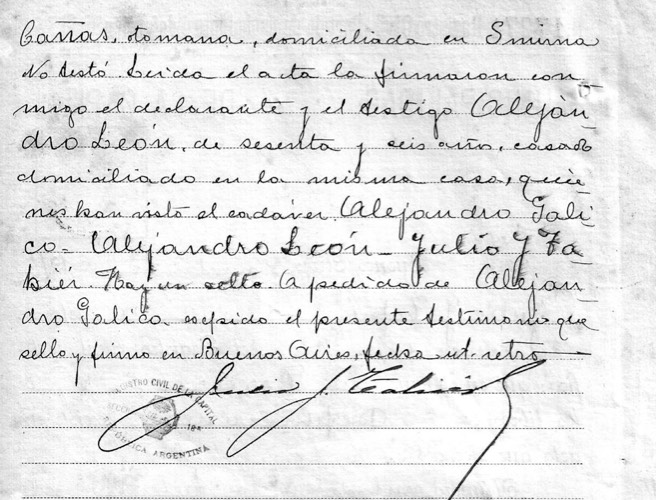 Cañas, otomana, domiciliada en Smirna
No testó. Leida el acta la firmaron con
migo el declarante y el testigo Alejan
dro León, de sesenta y seis años, casado
domiciliado en la misma casa, quie
nes han visto el cadáver. Alejandro Gali
co - Alejandro León - Julio J Ta
biér. Hay un sello. A pedido de Alejan
dro Galico expido el presente testimonio que
sello y firmo en Buenos Aires, fecha ut-retro
REGISTRO CIVIL DE LA CAPITAL
REPÚBLICA ARGENTINA